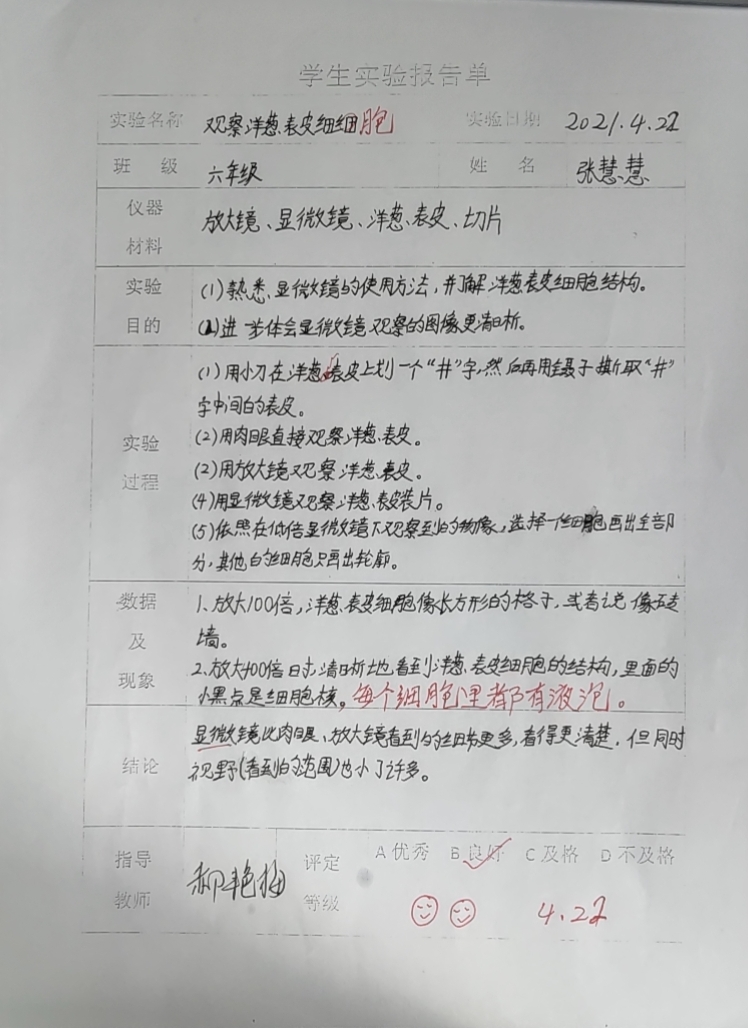 学生实验报告单
实验名称 观察洋葱表皮细细胞 实验日期 2021.4.22
班 级 六年级 姓 名 张慧慧
仪器
材料
放大镜、显微镜、洋葱、表皮、切片
实验
目的
(1)熟悉显微镜的使用方法,并了解洋葱表皮细胞结构。
(2)进一步体会显微镜观察的图像更清晰。
实验
过程
(1)用小刀在洋葱表皮上划一个“井”字,然后再用镊子撕取“井”
字中间的表皮。
(2)用肉眼直接观察洋葱表皮。
(2)用放大镜观察洋葱表皮。
(4)用显微镜观察洋葱表皮装片。
(5)依照在低倍显微镜下观察到的物像,选择一个细胞画出全部
分,其他的细胞只画出轮廓。
数据
及
现象
1、放大100倍,洋葱表皮细胞像长方形的格子,或者说像一
墙。
2、放大400倍时,清晰地看到洋葱表皮细胞的结构,里面的
小黑点是细胞核。每个细胞里都有液泡。
结论
显微镜比肉眼、放大镜看到的细节更多,看得更清楚,但同时
视野(看到的范围)也小了许多。
指导
教师
郝艳梅
评定
等级
A优秀 B良好 C及格 D不及格
4.22